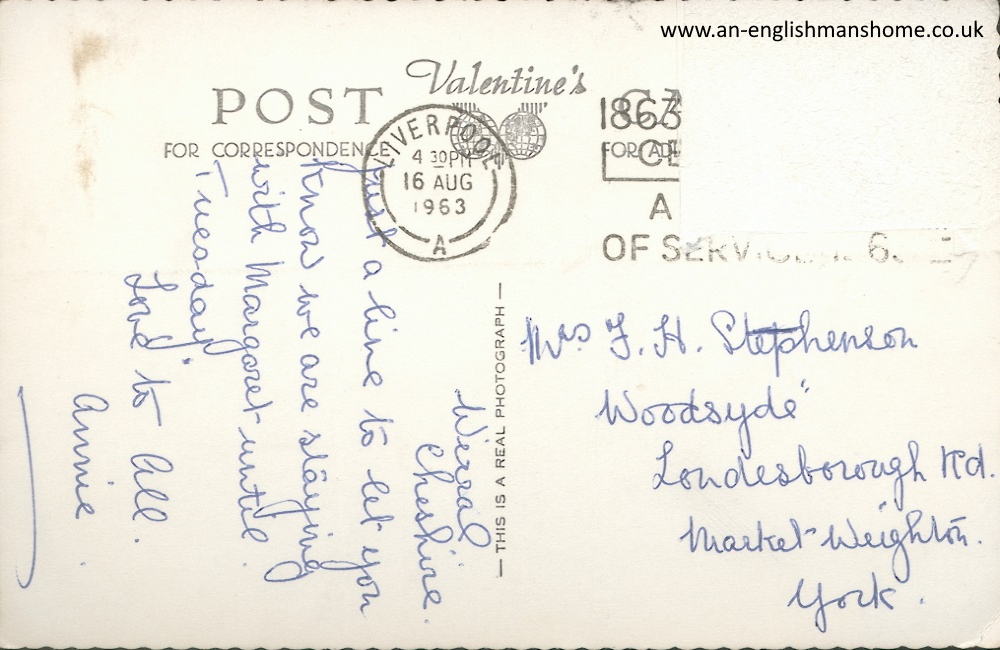 www.an-englishmanshome.co.uk
POST
Valentine's
FOR CORRESPONDENCE
FOR AD
LIVERPOOL
4 30PM
16 AUG
1963
A
1863
A
OF SERVICE
THIS IS A REAL PHOTOGRAPH
Wirral
Cheshire.
Just a line to let you
know we are staying
with Margaret until
Tuesday.
Love to All.
Annie.
Mrs F. H. Stephenson
"Woodsyde"
Londesborough Rd.
Market Weighton.
York.